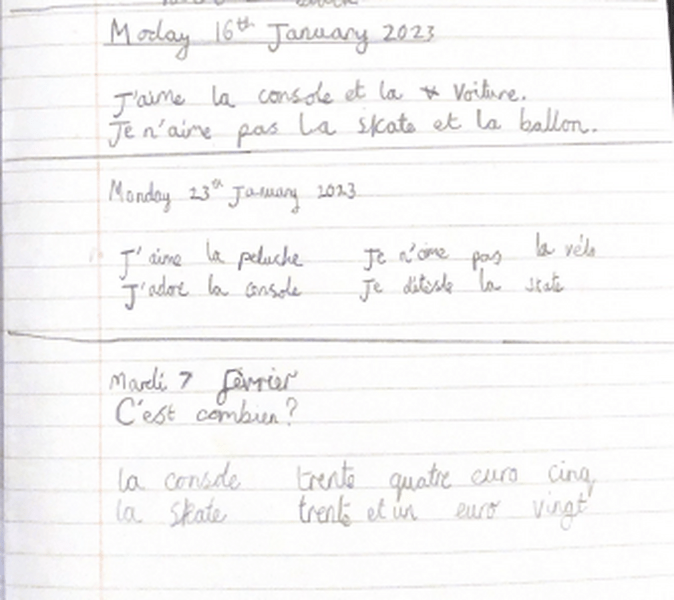 Moday 16th January 2023
J'aime la console et la voiture.
Je n'aime pas la skate et la ballon.
Monday 23th January 2023
J'aime la peluche Je n'ame pas la vélo
J'adore la console Je déteste la skate
Mardi 7 février
C'est combien?
la console trente quatre euro cinq
la skate trente et un euro vingt